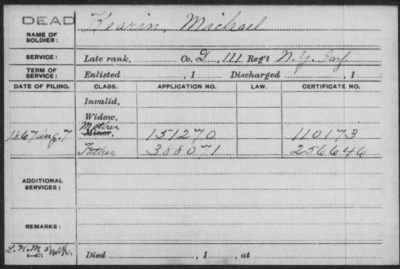 DEAD
NAME OF SOLDIER: Kearin, Michael
SERVICE: Late rank, Co. D, 111 Reg't N.Y. Inf.
TERM OF SERVICE: Enlisted , 1 Discharged , 1
DATE OF FILING. CLASS. APPLICATION NO. LAW. CERTIFICATE NO.
Invalid,
Widow,
Mother
1867 Aug. 7 Minor, 151270 110173
Father 388071 256646
ADDITIONAL SERVICES:
REMARKS:
Died , 1 , at